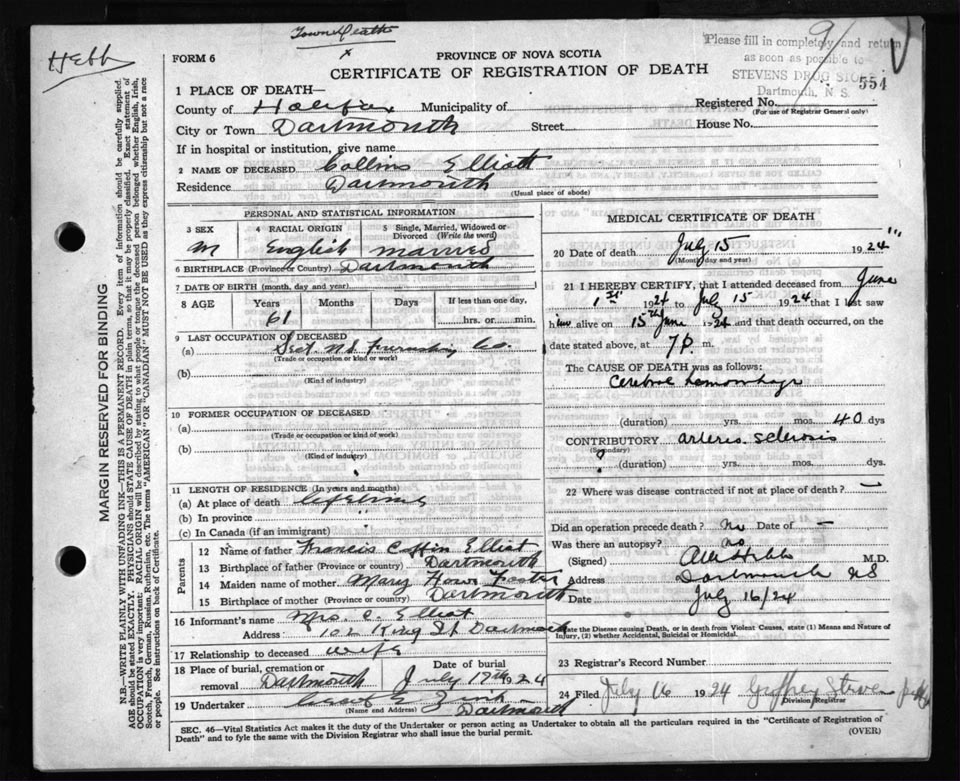 Town Death
x
Hebb
FORM 6
PROVINCE OF NOVA SCOTIA
CERTIFICATE OF REGISTRATION OF DEATH
Please fill in completely and return
as soon as possible to
STEVENS DRUG STORE
Dartmouth, N. S.
91
554
1 PLACE OF DEATH—
County of Halifax Municipality of
Registered No.
(For use of Registrar General only)
City or Town Dartmouth Street House No.
If in hospital or institution, give name
2 NAME OF DECEASED Collins Elliott
Residence Dartmouth
(Usual place of abode)
PERSONAL AND STATISTICAL INFORMATION
3 SEX 4 RACIAL ORIGIN 5 Single, Married, Widowed or Divorced (Write the word)
M English married
6 BIRTHPLACE (Province or Country) Dartmouth
7 DATE OF BIRTH (month, day and year)
8 AGE Years Months Days If less than one day,
61 hrs. or min.
9 LAST OCCUPATION OF DECEASED
(a) Sect. N.S. Co.
(Trade or occupation or kind of work)
(b)
(Kind of industry)
10 FORMER OCCUPATION OF DECEASED
(a)
(Trade or occupation or kind of work)
(b)
(Kind of industry)
11 LENGTH OF RESIDENCE (In years and months)
(a) At place of death lifetime
(b) In province "
(c) In Canada (if an immigrant)
Parents
12 Name of father Francis Coffin Elliot
13 Birthplace of father (Province or Country) Dartmouth
14 Maiden name of mother Mary Howe Foster
15 Birthplace of mother (Province or country) Dartmouth
16 Informant's name Mrs. C. Elliot
Address: 102 King St Dartmouth
17 Relationship to deceased wife
18 Place of burial, cremation or removal Dartmouth Date of burial July 17th 1924
19 Undertaker Zink
(Name and Address) Dartmouth
MEDICAL CERTIFICATE OF DEATH
20 Date of death July 15 1924
(Month, day and year)
21 I HEREBY CERTIFY, that I attended deceased from June
1st 1924 to July 15 1924 that I last saw
him alive on 15th June 1924 and that death occurred, on the
date stated above, at 7 P. m.
The CAUSE OF DEATH was as follows:
Cerebral hemorrhage
(duration) yrs. mos. 40 dys
CONTRIBUTORY arterio sclerosis
(Secondary)
? (duration) yrs. mos. dys.
22 Where was disease contracted if not at place of death? —
Did an operation precede death? No Date of —
Was there an autopsy? no
(Signed) Hebb M.D.
Address Dartmouth NS
Date July 16/24
State the Disease causing Death, or in death from Violent Causes, state (1) Means and Nature of
Injury, (2) whether Accidental, Suicidal or Homicidal.
23 Registrar's Record Number
24 Filed July 16 1924 Geoffrey Stevens
Division Registrar
SEC. 46—Vital Statistics Act makes it the duty of the Undertaker or person acting as Undertaker to obtain all the particulars required in the "Certificate of Registration of
Death" and to fyle the same with the Division Registrar who shall issue the burial permit.
(OVER)
MARGIN RESERVED FOR BINDING
N.B.—WRITE PLAINLY WITH UNFADING INK—THIS IS A PERMANENT RECORD. Every item of information should be carefully supplied.
AGE should be stated EXACTLY. PHYSICIANS should STATE CAUSE OF DEATH in plain terms, so that it may be properly classified. Exact statement of
OCCUPATION is very important: RACIAL ORIGIN will be described by stating to what people or tongue the deceased person belonged whether English, Irish,
Scotch, French, German, Russian, Ruthenian, etc. The terms "AMERICAN" OR "CANADIAN" MUST NOT BE USED as they express citizenship but not a race
or people. See instructions on back of Certificate.